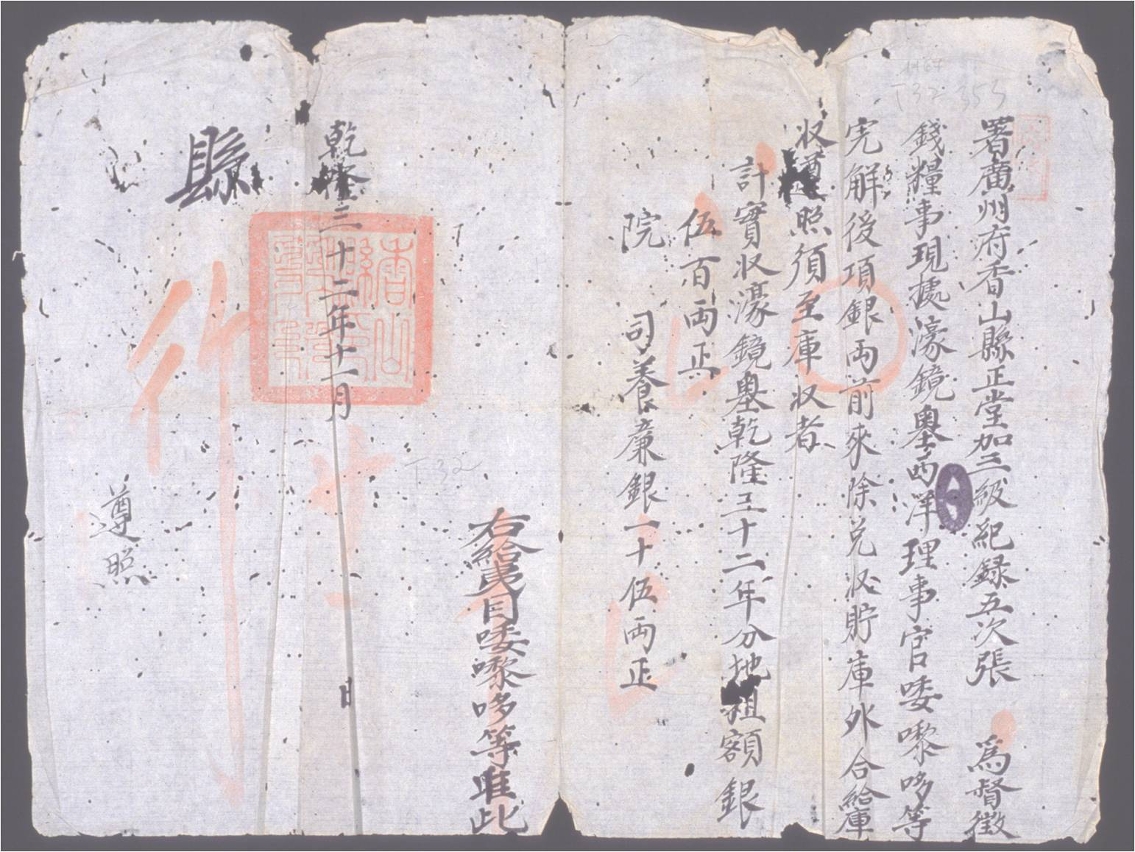 署廣州府香山縣正堂加三級紀錄五次張 為督徵
錢糧事現據濠鏡墺西洋理事官唩嚟哆等
完解後項銀両前來除兌收貯庫外合給庫
收遵照須至庫收者
計實收濠鏡墺乾隆三十二年分地租額銀
伍百両正
院 司養廉銀一十伍両正
右給夷目唩嚟哆等准此
乾隆三十二年十一月 日
縣
行
遵照
香山縣印
T32
T32 355